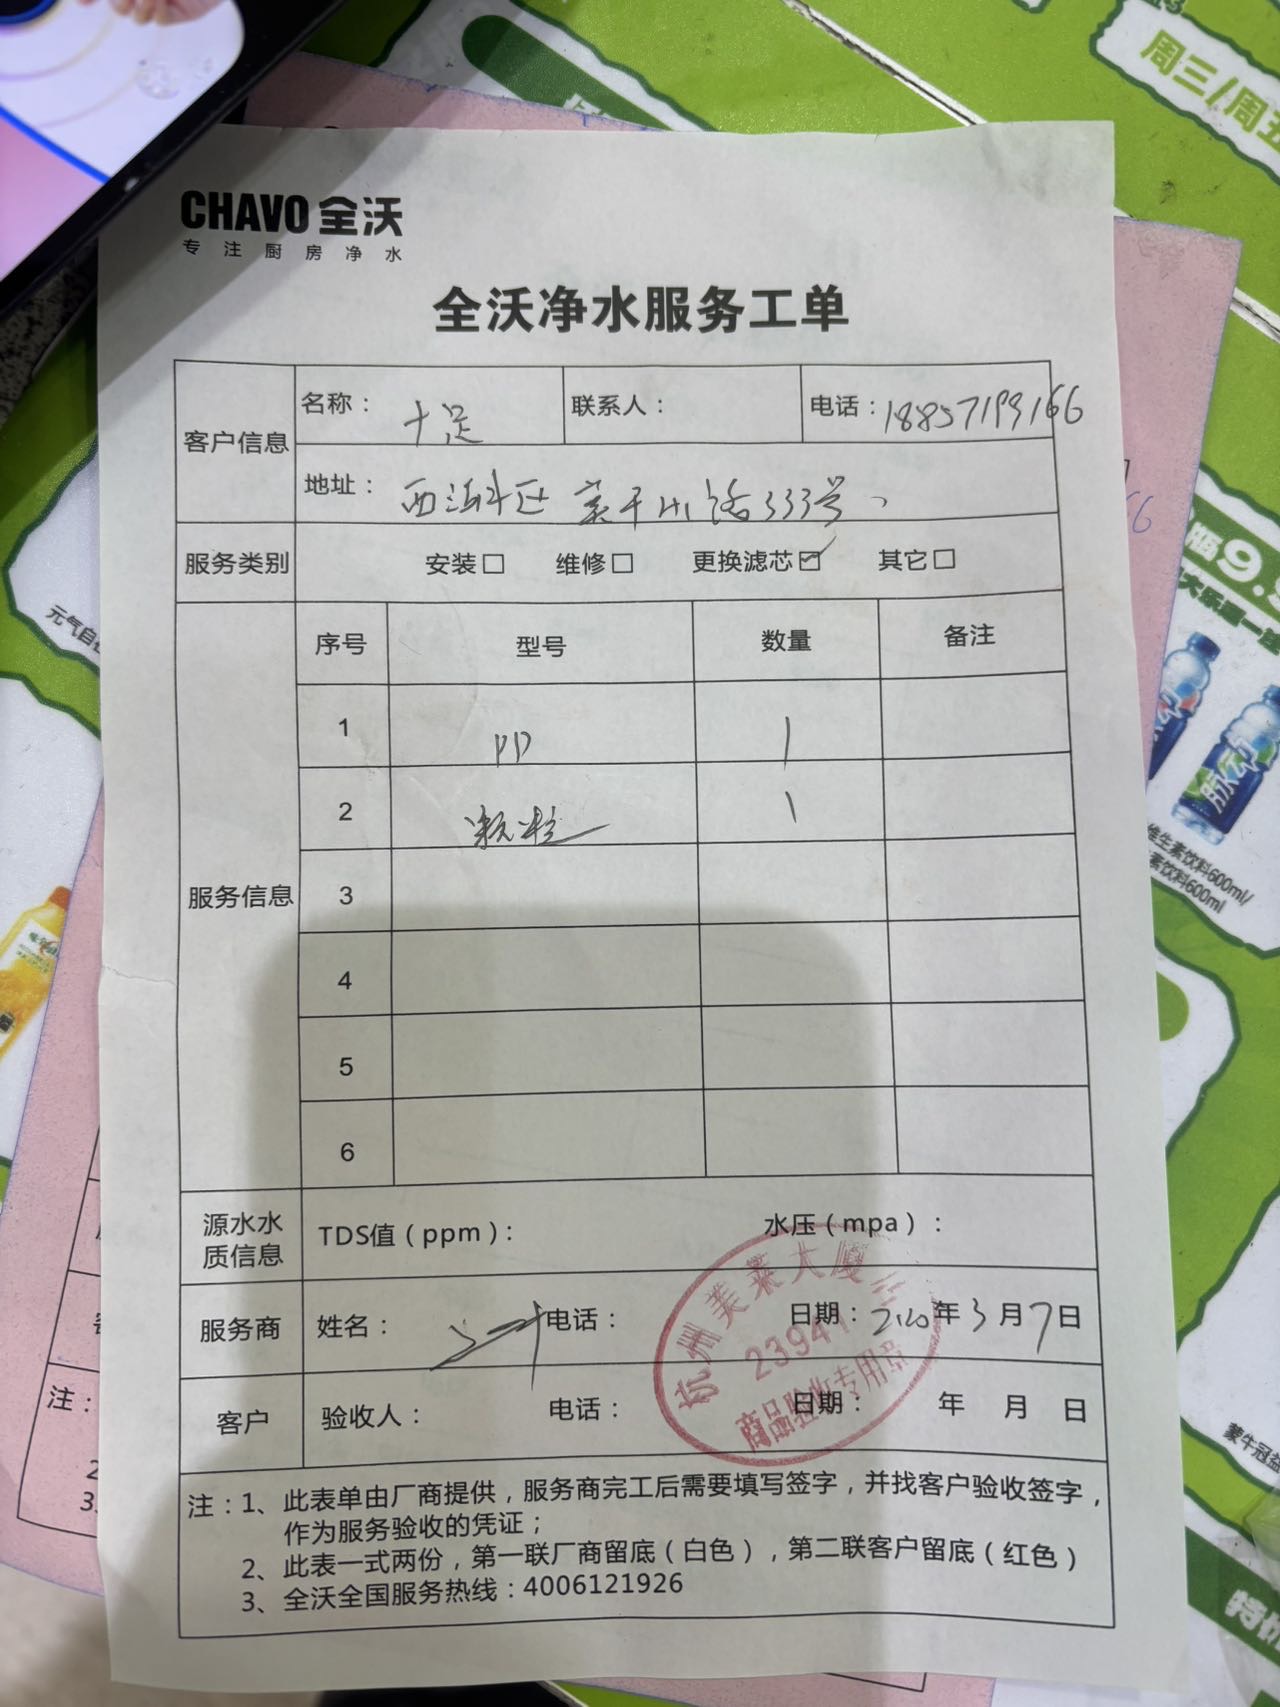 CHAVO 全沃
专注厨房净水
全沃净水服务工单
客户信息
名称： 十足 联系人： 电话：18857199166
地址： 西湖区 路333号
服务类别 安装□ 维修□ 更换滤芯☑ 其它□
服务信息
序号 型号 数量 备注
1 PP 1
2 颗粒 1
3
4
5
6
源水水质信息 TDS值（ppm）： 水压（mpa）：
服务商 姓名： 电话： 日期： 年3月7日
客户 验收人： 电话： 日期： 年 月 日
杭州美莱大厦
23941
商品验收专用章
注：1、此表单由厂商提供，服务商完工后需要填写签字，并找客户验收签字，
作为服务验收的凭证；
2、此表一式两份，第一联厂商留底（白色），第二联客户留底（红色）
3、全沃全国服务热线：4006121926
周三/周五
元气自
版9.
大乐灌一
脉动
维生素饮料600ml/
素饮料600ml
蒙牛冠益
注：
2
3
66